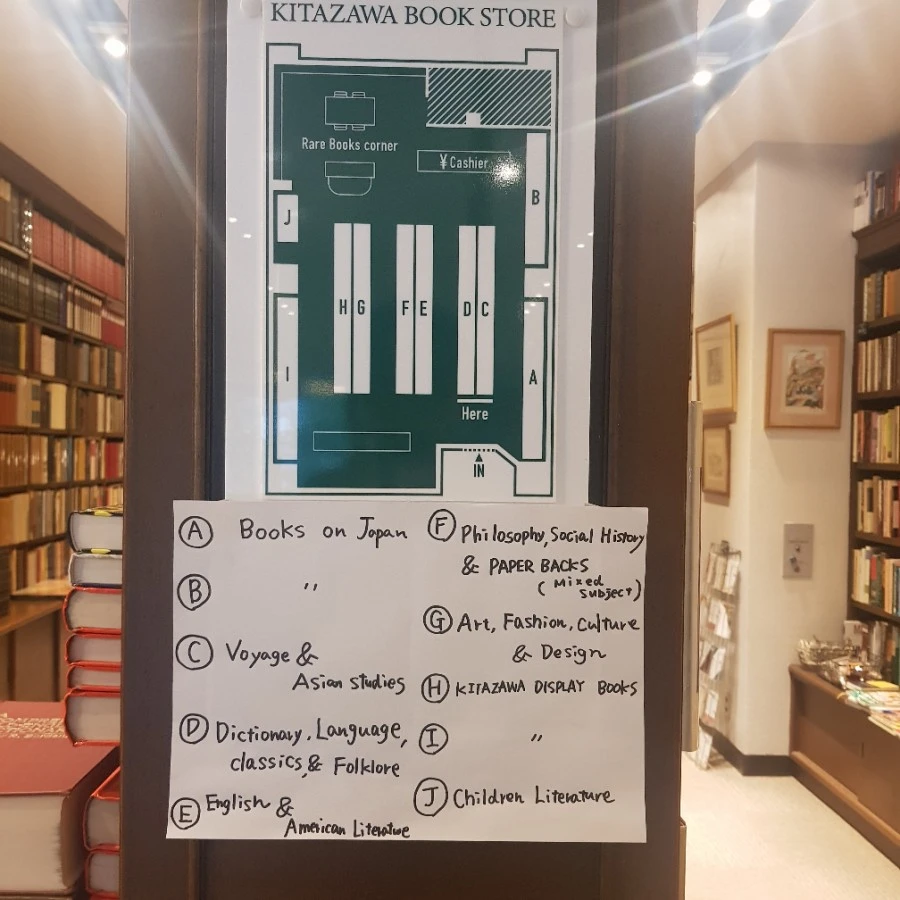 KITAZAWA BOOK STORE
Rare Books corner
¥Cashier
B
J
H G F E D C
I
A
Here
IN
Ⓐ Books on Japan
Ⓑ 〃
Ⓒ Voyage &
Asian studies
Ⓓ Dictionary, Language,
classics, & Folklore
Ⓔ English &
American Literature
Ⓕ Philosophy, Social History
& PAPER BACKS
(Mixed
subject)
Ⓖ Art, Fashion, Culture
& Design
Ⓗ KITAZAWA DISPLAY BOOKS
Ⓘ 〃
Ⓙ Children Literature